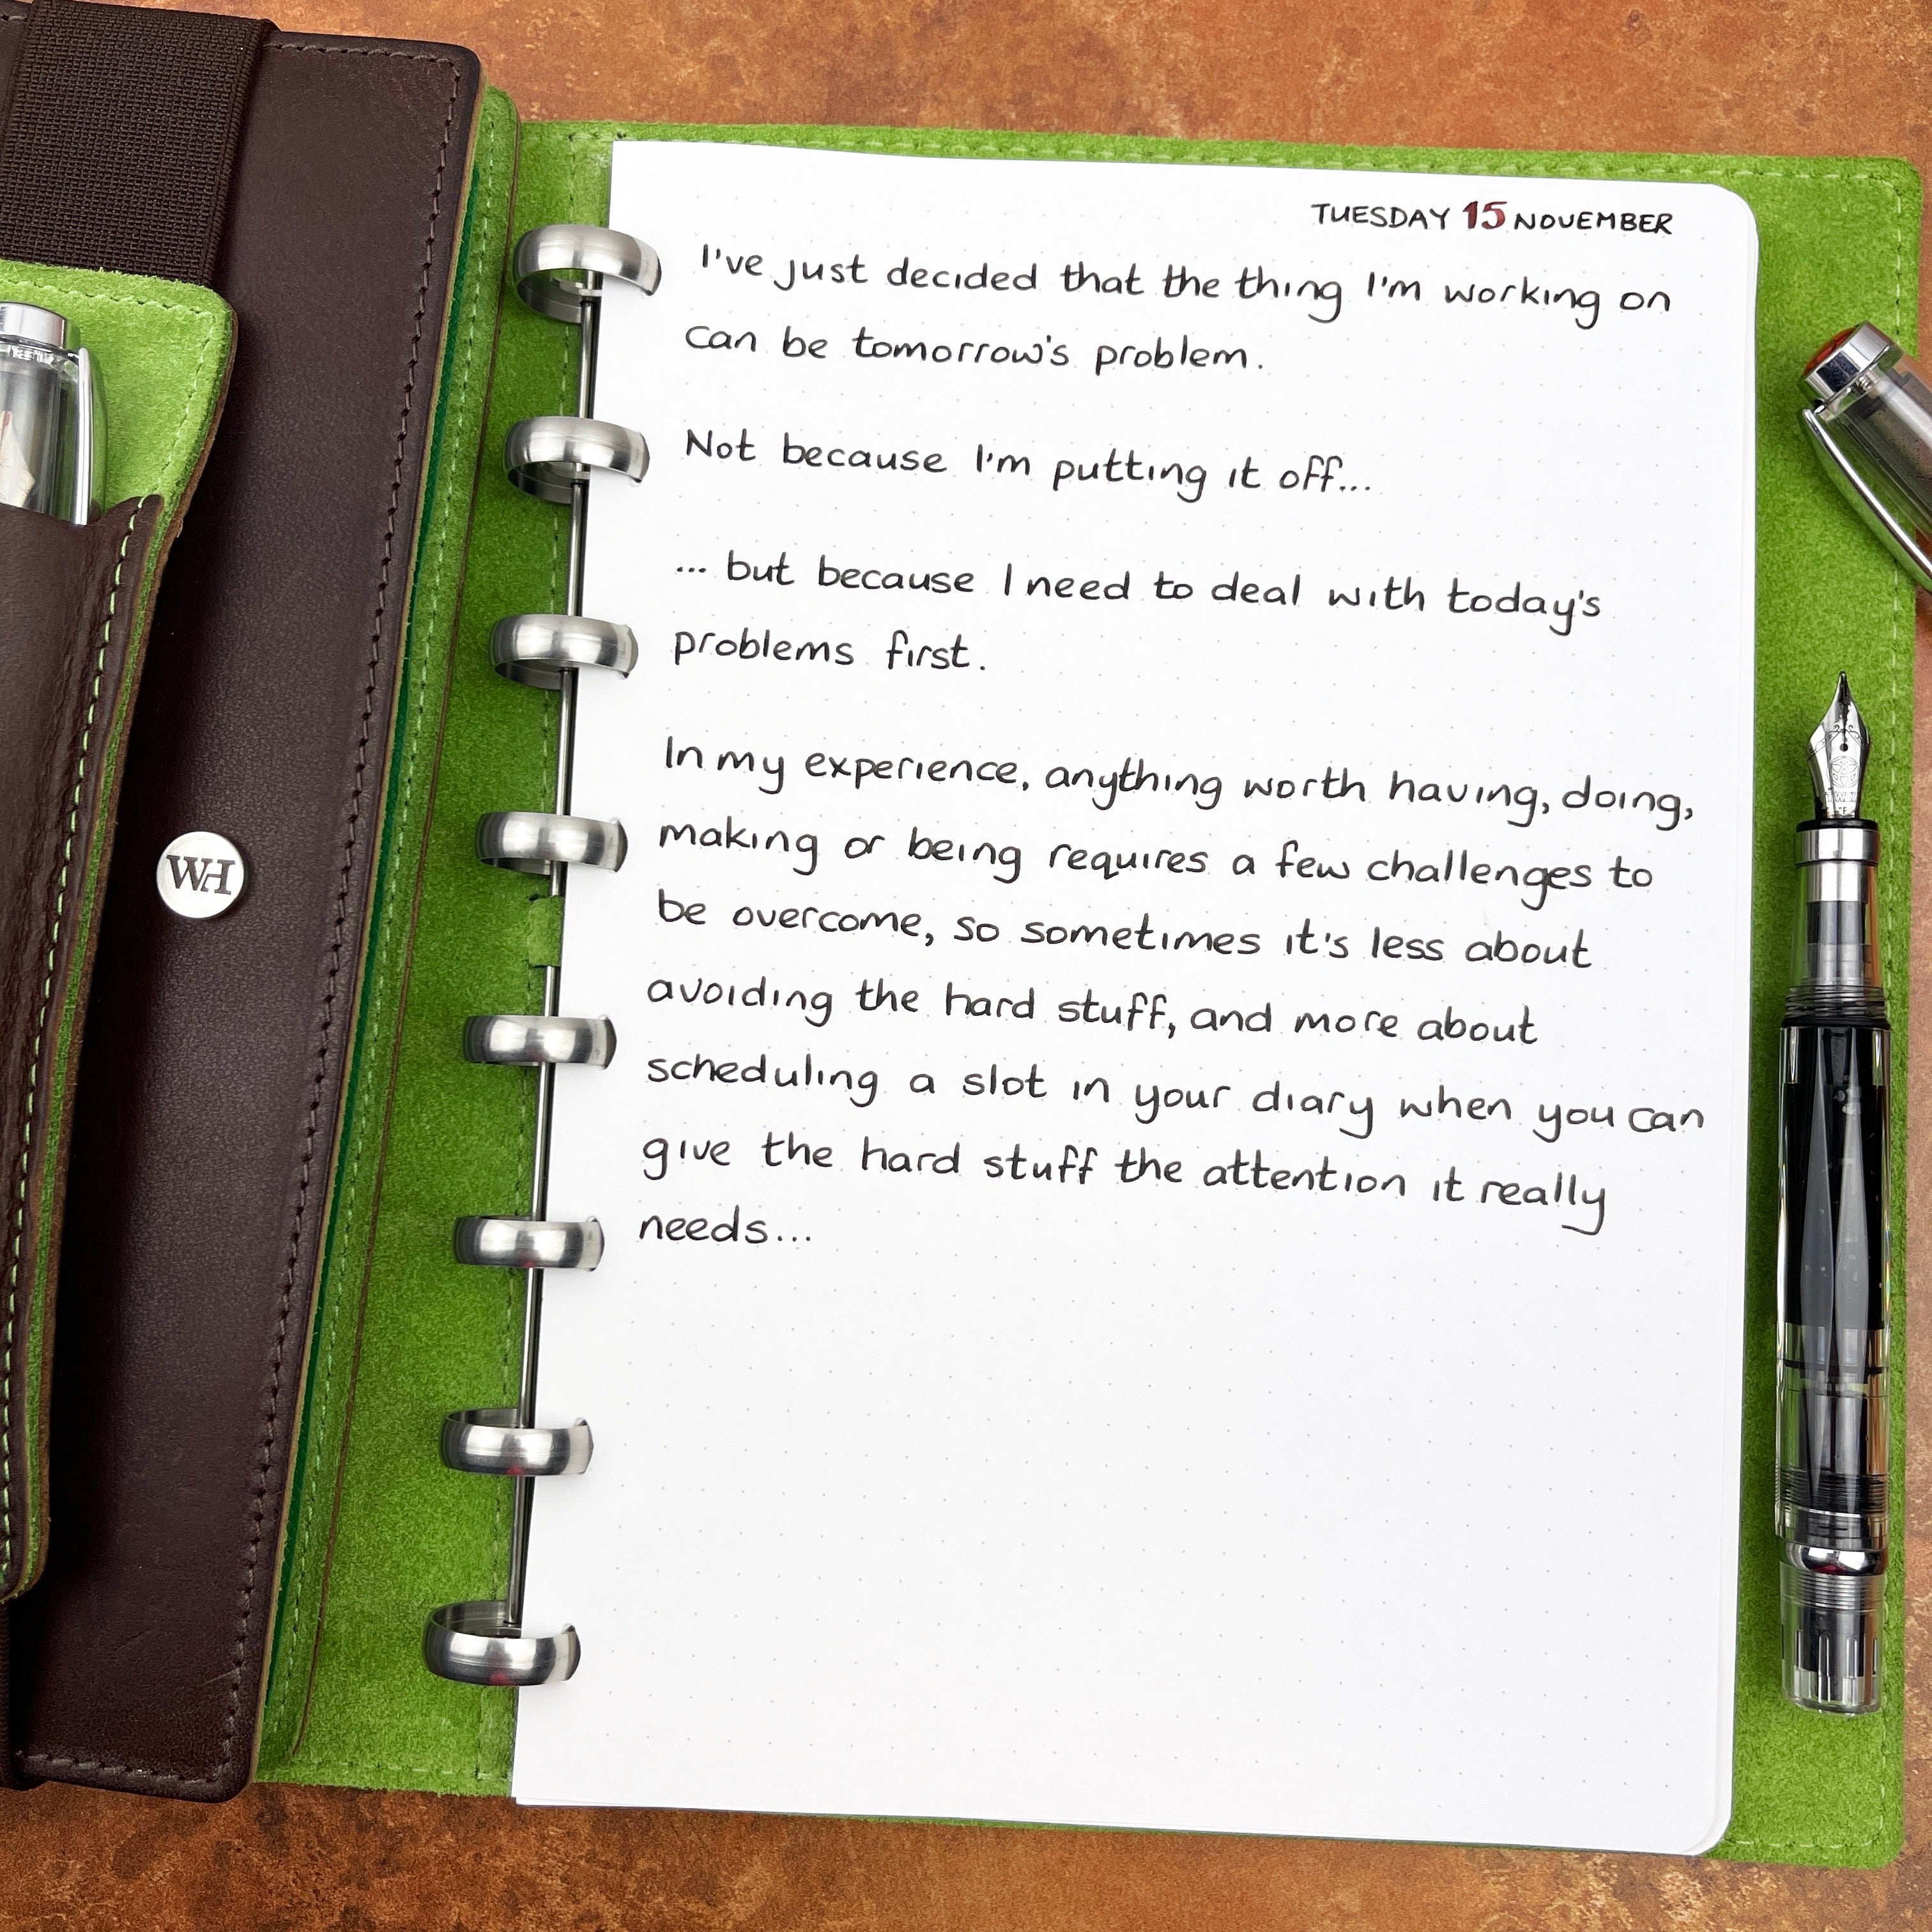 TUESDAY 15 NOVEMBER
I've just decided that the thing I'm working on
can be tomorrow's problem.
Not because I'm putting it off...
... but because I need to deal with today's
problems first.
In my experience, anything worth having, doing,
making or being requires a few challenges to
be overcome, so sometimes it's less about
avoiding the hard stuff, and more about
scheduling a slot in your diary when you can
give the hard stuff the attention it really
needs...
WH